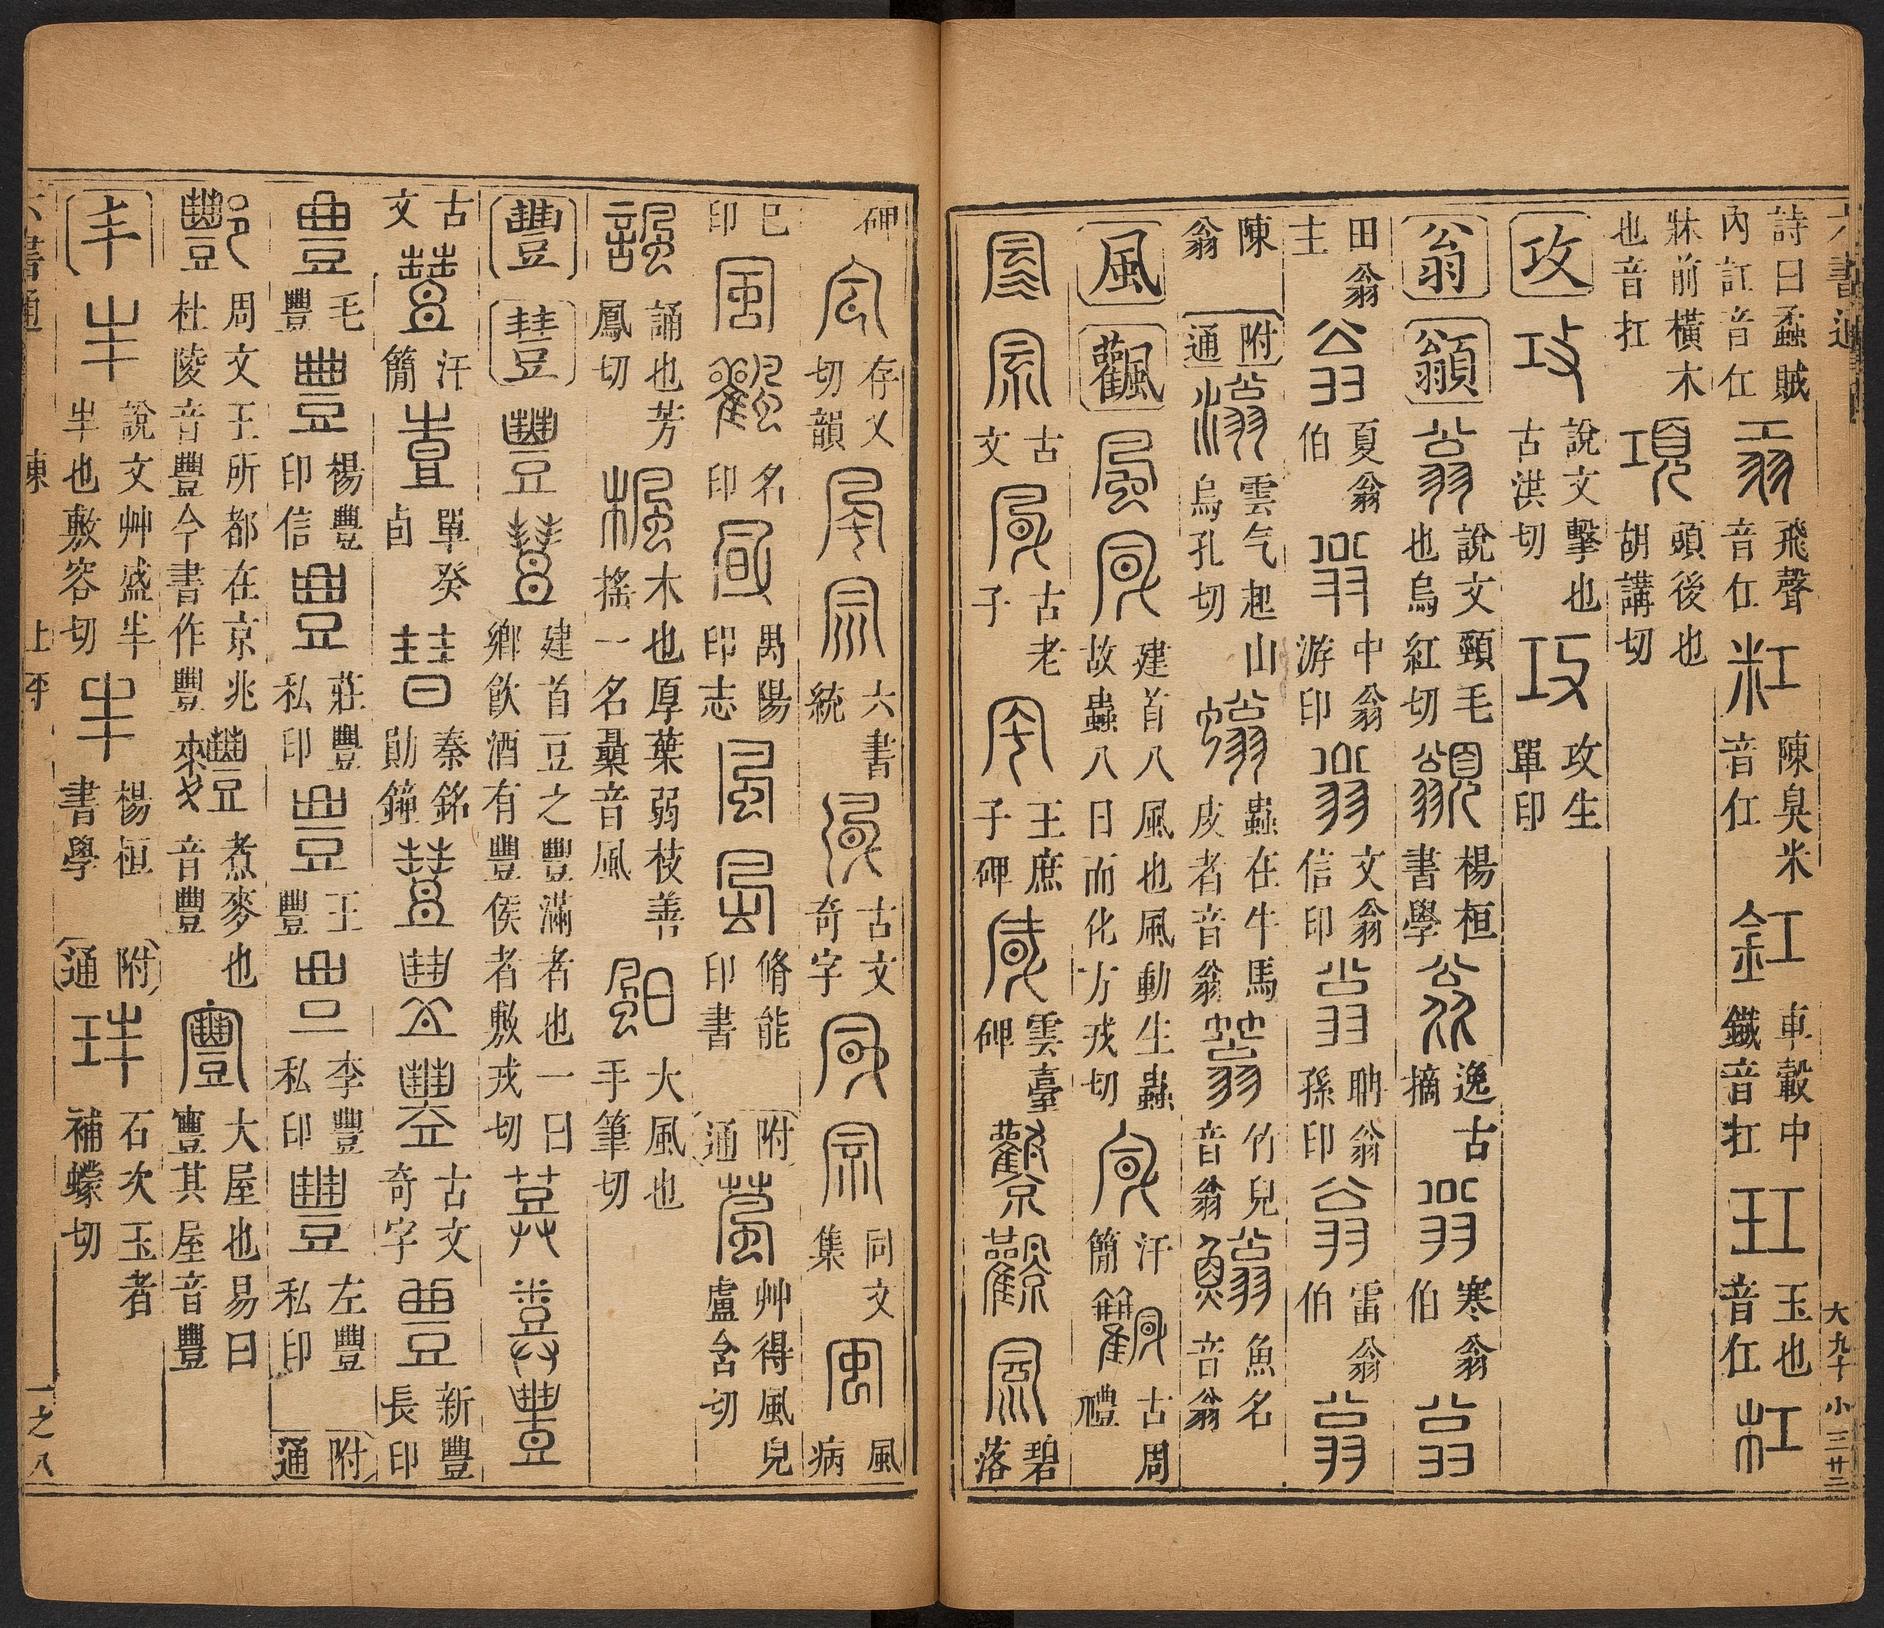 六書通 大九十 小三廿三
詩曰蟊賊內訌音仜 飛聲音仜 粠 陳臭米音仜 釭 車轂中鐵音扛 玒 玉也音仜 杠
牀前橫木也音扛 項 頭後也胡講切
攻 攻 說文擊也古洪切 攻 攻生單印
翁 翁 說文頸毛也烏紅切 楊桓書學 逸古摘 翁 寒翁伯 翁
田翁主 翁 夏翁伯 翁 中翁游印 翁 文翁信印 翁 聃翁孫印 翁 雷翁伯 翁
陳翁 附通 滃 雲气起山烏孔切 螉 蟲在牛馬皮者音翁 蓊 竹皃音翁 魚名音翁
風 飌 風 建首八風也風動生蟲故蟲八日而化方戎切 汗簡 古周禮
古文 古老子 王庶子碑 雲臺碑 碧落
碑 存乂切韻 六書統 古文奇字 同文集 風病
已印 名印 禺陽印志 脩能印書 附通 葻 艸得風皃盧含切
諷 誦也芳鳳切 楓 木也厚葉弱枝善搖一名欇音風 颮 大風也手筆切
豐 豐 建首豆之豐滿者也一曰鄉飲酒有豐侯者敷戎切
古文 汗簡 單癸卣 秦銘勛鐘 古文奇字 豐 新豐長印
豐 毛豐 豐 楊豐印信 豐 莊豐私印 豐 王豐 李豐私印 豐 左豐私印 附通
酆 周文王所都在京兆杜陵音豐今書作豐 麷 煮麥也音豐 寷 大屋也易曰寷其屋音豐
丰 丰 說文艸盛丰丰也敷容切 丰 楊桓書學 附通 玤 石次玉者補蠓切
六書通 東 上平 一之八